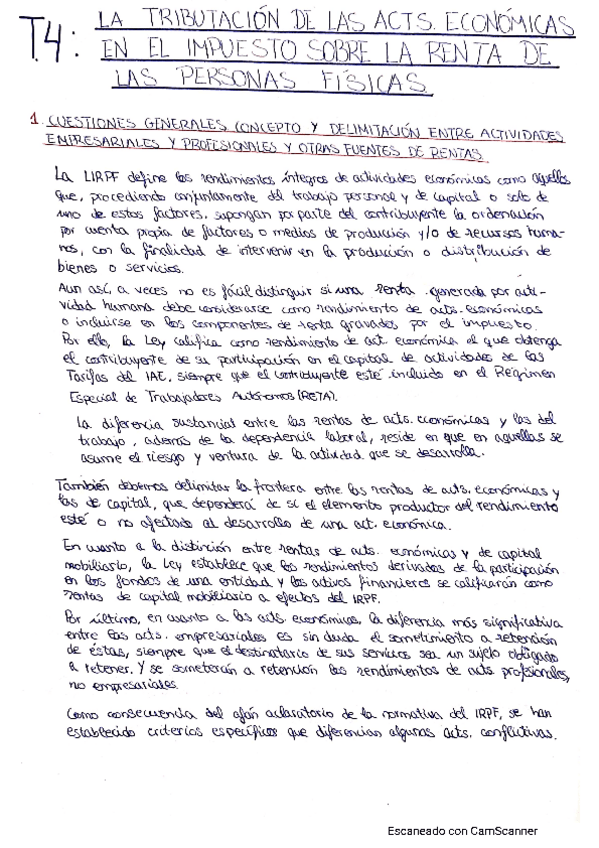 T.4: LA TRIBUTACIÓN DE LAS ACTS. ECONÓMICAS
EN EL IMPUESTO SOBRE LA RENTA DE
LAS PERSONAS FÍSICAS.
1. CUESTIONES GENERALES CONCEPTO Y DELIMITACIÓN ENTRE ACTIVIDADES
EMPRESARIALES Y PROFESIONALES Y OTRAS FUENTES DE RENTAS.
La LIRPF define los rendimientos íntegros de actividades económicas como aquellos
que, procediendo conjuntamente del trabajo personal y de capital o solo de
uno de estos factores, supongan por parte del contribuyente la ordenación
por cuenta propia de factores o medios de producción y/o de recursos huma-
nos, con la finalidad de intervenir en la producción o distribución de
bienes o servicios.
Aun así, a veces no es fácil distinguir si una renta generada por acti-
vidad humana debe considerarse como rendimiento de acts. económicas
o incluirse en los componentes de renta gravados por el impuesto.
Por ello, la Ley califica como rendimiento de act. económica el que obtenga
el contribuyente de su participación en el capital de actividades de las
Tarifas del IAE, siempre que el contribuyente esté incluido en el Régimen
Especial de Trabajadores Autónomos (RETA).
La diferencia sustancial entre las rentas de acts. económicas y las del
trabajo, además de la dependencia laboral, reside en que en aquellas se
asume el riesgo y ventura de la actividad que se desarrolla.
También debemos delimitar la frontera entre las rentas de acts. económicas y
las de capital, que dependerá de si el elemento productor del rendimiento
esté o no afectado al desarrollo de una act. económica.
En cuanto a la distinción entre rentas de acts. económicas y de capital
mobiliario, la Ley establece que los rendimientos derivados de la participación
en los fondos de una entidad y los activos financieros se calificarán como
rentas de capital mobiliario a efectos del IRPF.
Por último, en cuanto a las acts. económicas, la diferencia más significativa
entre las acts. empresariales es sin duda el sometimiento a retención
de éstas, siempre que el destinatario de sus servicios sea un sujeto obligado
a retener. Y se someterán a retención los rendimientos de acts profesionales,
no empresariales.
Como consecuencia del afán aclaratorio de la normativa del IRPF, se han
establecido criterios específicos que diferencian algunas acts. conflictivas.
Escaneado con CamScanner